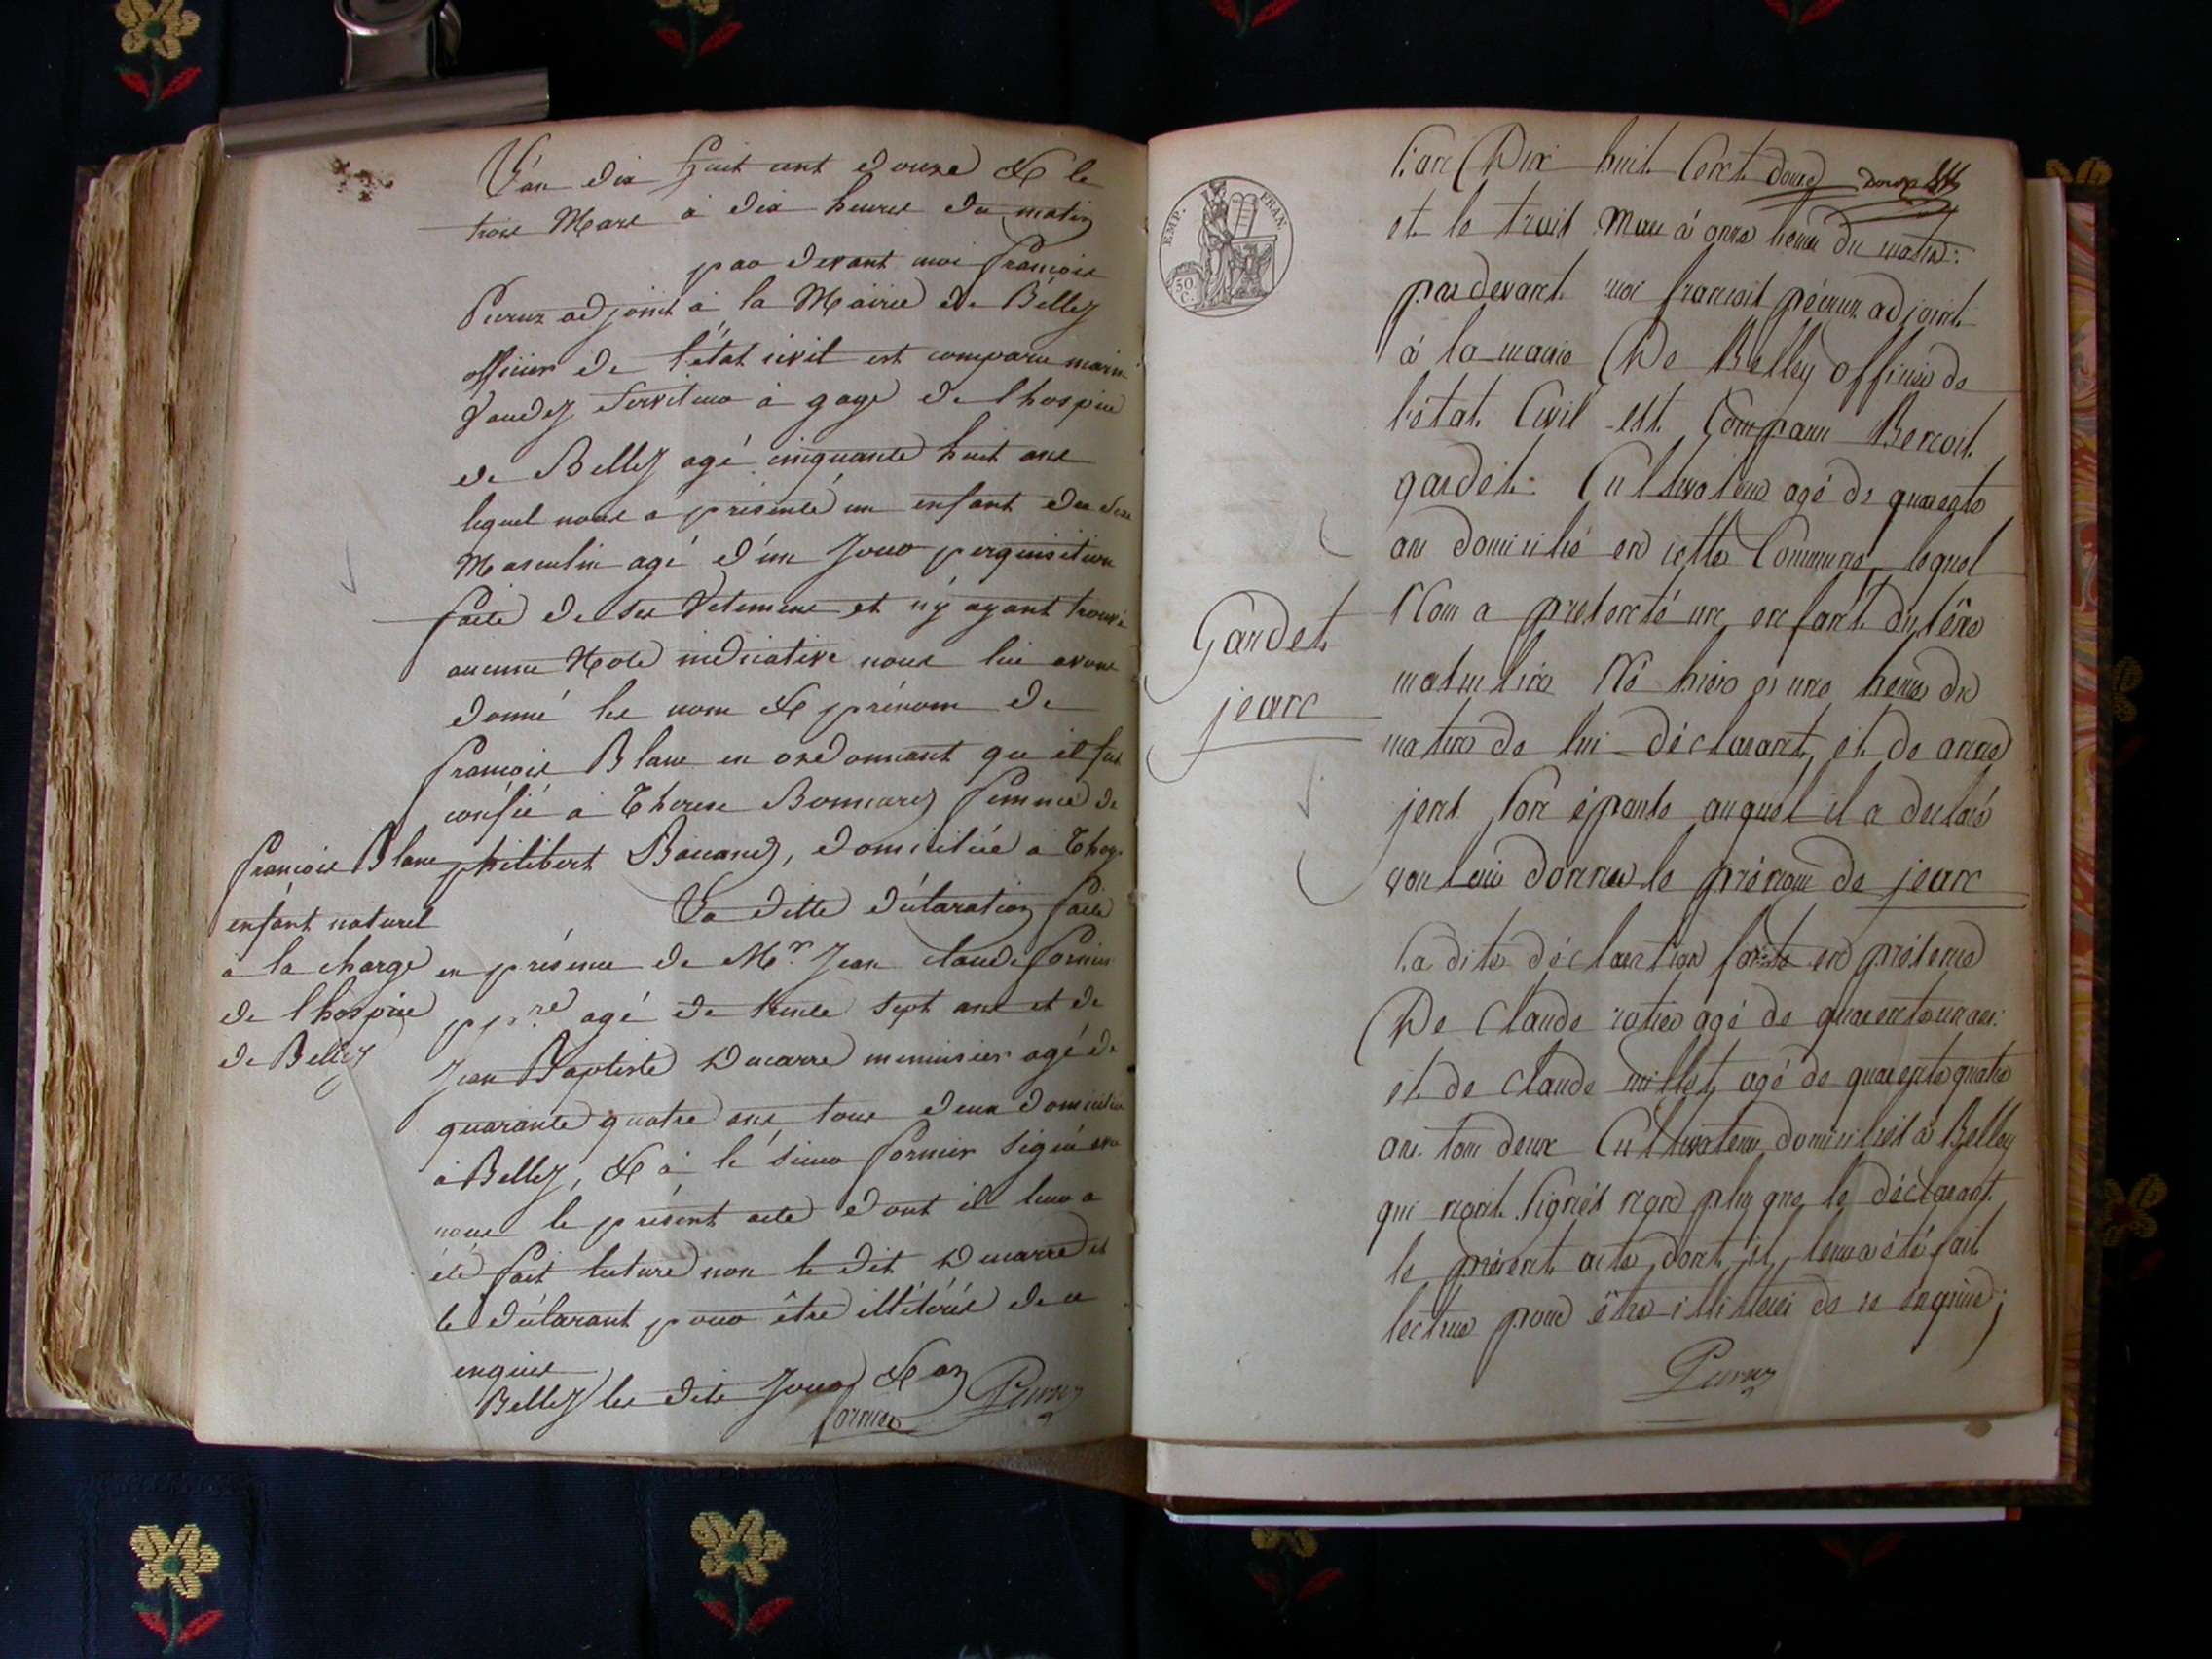 L'an dix huit cent douze & le
trois Mars à dix heures du matin
par devant moi francois
Peruz adjoint à la Mairie de Belley
officier de l'état civil est comparu
serviteur à gage de l'hospice
de Belley agé cinquante huit ans
lequel nous a présenté un enfant du sexe
Masculin agé d'un Jour perquisition
faite de ses vetemens et n'y ayant trouvé
aucune Note indicative nous lui avons
donné les nom & prénom de
francois Blanc en ordonnant qu'il fut
confié à Therese femme de
philibert domiciliée à
La ditte déclaration faite
en présence de Mr. Jean claude fornier
ppre. agé de trente sept ans et de
Jean Baptiste Ducarre menuisier agé de
quarante quatre ans tous deux domiciliés
à Belley, & à le sieur fornier signé avec
nous le présent acte dont il leur a
été fait lecture non le dit Ducarre et
le déclarant pour être illitérés de ce
enquis
Belley les dits Jour & an
fornier Peruz
francois Blanc
enfant naturel
à la charge
de l'hospice
de Belley
EMP. FRAN.
50 C.
L'an Dix huit Cent douze
et le trois Mars à onze heures du matin
pardevant moi francois péruz adjoint
à la mairie De Belley officier de
l'état Civil est Comparu Benoit
gardet Cultivateur agé de quarente
ans domicilié en cette Commune lequel
Nous a presenté un enfant du sexe
masculin Né hier à une heure du
matin de lui déclarant et de anne
jent son épouse auquel il a declaré
vouloir donner le prénom de jean
La dite déclaration faite en présence
De Claude agé de quarente un ans
et de Claude millet agé de quarente quatre
ans tous deux Cultivateurs domiciliés à Belley
qui n'ont signés non plus que le déclarant
le présent acte dont il leur a été fait
lecture pour être illitterés de ce enquis;
Peruz
Gardet
jean